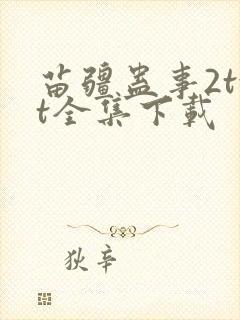 苗疆蛊事2t
t全集下载
狄辛